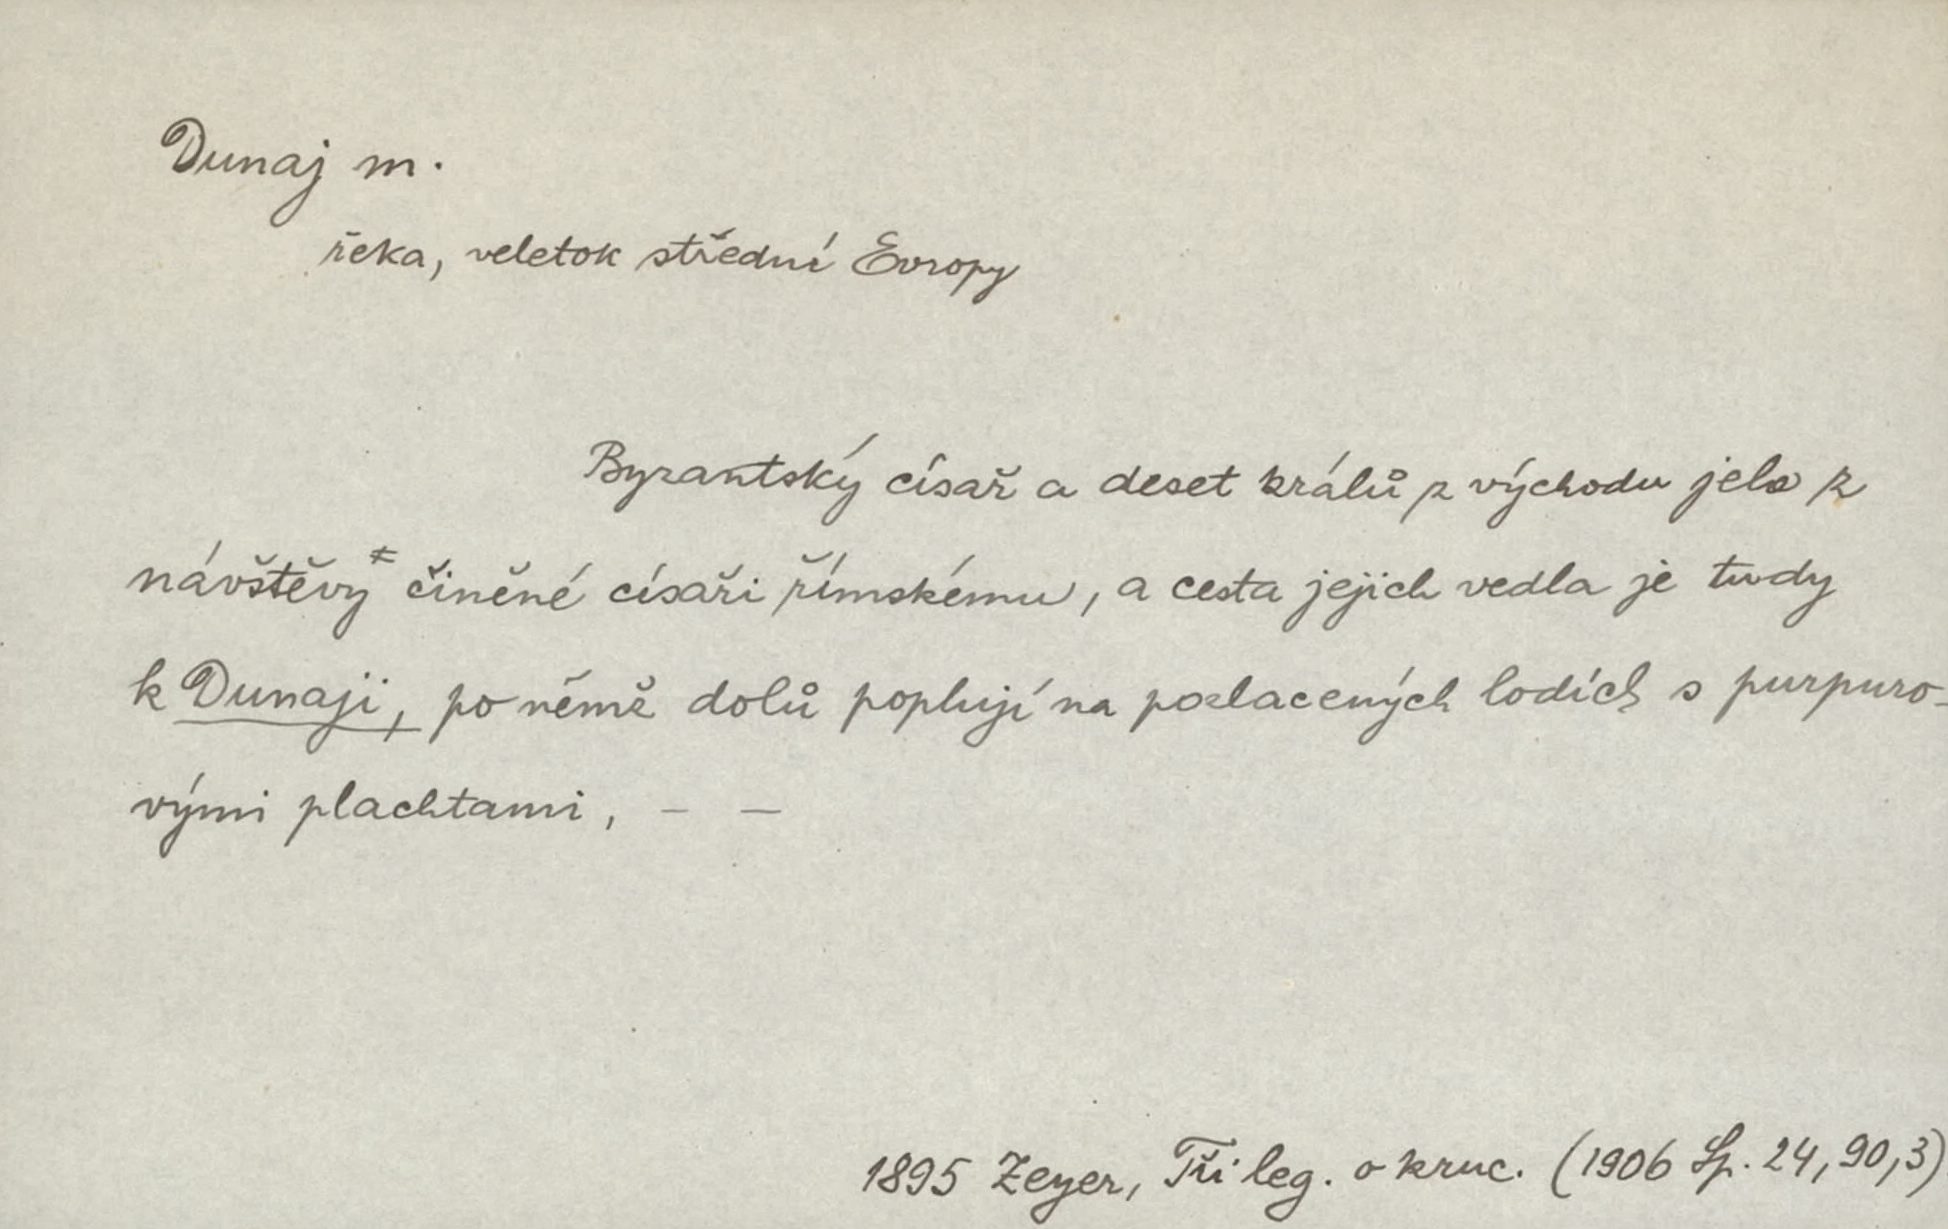 Dunaj m.
řeka, veletok střední Evropy
Byzantský císař a deset králů z východu jelo z
návštěvy≠ činěné císaři římskému, a cesta jejich vedla je tudy
k Dunaji, po němž dolů poplují na pozlacených lodích s purpuro-
vými plachtami, – –
1895 Zeyer, Tři leg. o kruc. (1906 Sp. 24,90,3)